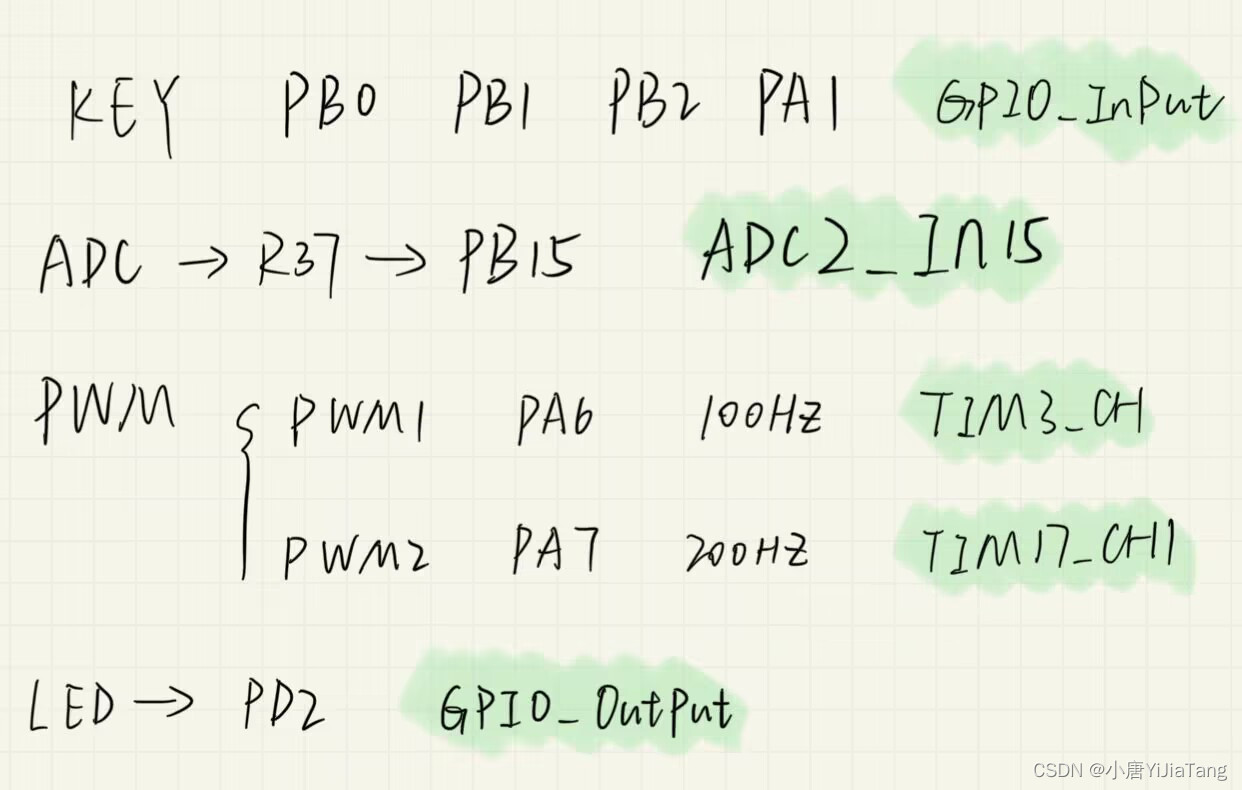 KEY PB0 PB1 PB2 PA1 GPIO_InPut
ADC → R37 → PB15 ADC2_IN15
PWM { PWM1 PA6 100HZ TIM3_CH1
PWM2 PA7 200HZ TIM17_CH1
LED → PD2 GPIO_OutPut
CSDN @小唐YiJiaTang